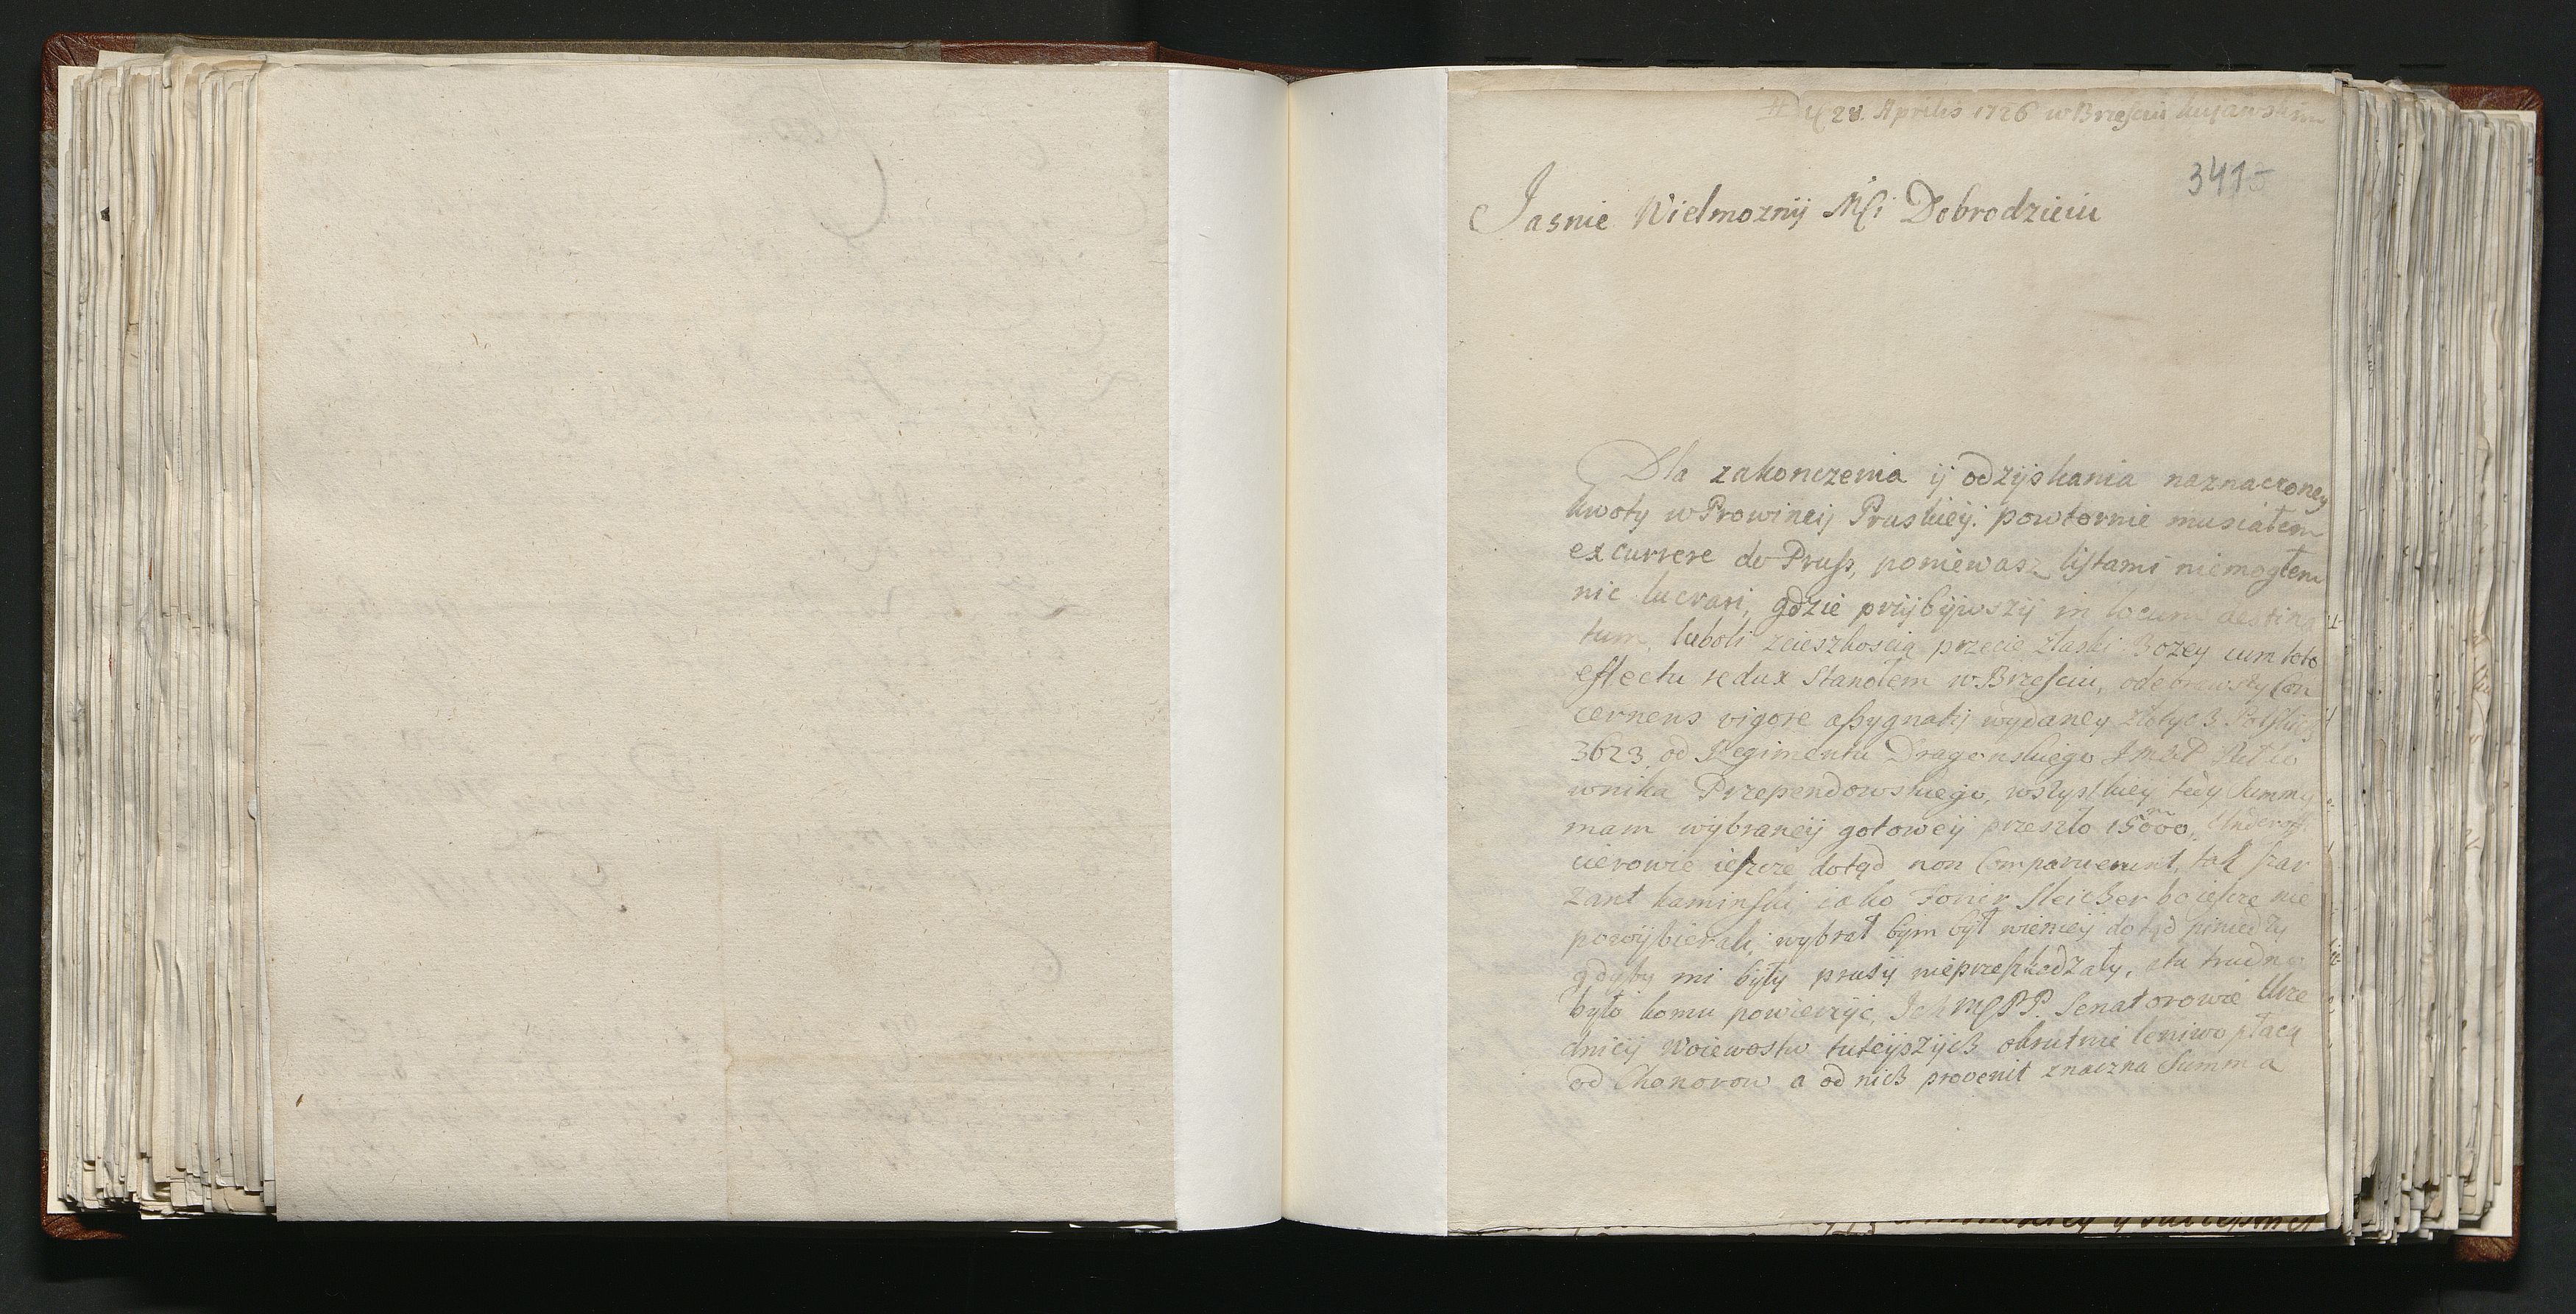 D 28. Aprilis 1726 w Brzesciu Kujawskim
341
Jasnie Wielmoznij Mći Dobrodzieiu
Dla zakonczenia ij odzijskania naznaczoney
kwoty w Prowincij Pruskieij powtornie musiałem
excurrere do Pruss, poniewasz listami niemogłem
nic lucrari, gdzie przijbijwszij in locum destina
tum, luboli zcieszkoscią przecie złaski Bozey cum toto
effectu redux stanołem w Brzesciu, odebrawszy Con
cernens vigore assygnatij wydaney złotych Polskich
3623 od Regimentu Dragonskiego Jmci P Pułko
wnika Przependowskiego, wszystkiey tedy summy
mam wijbraneij gotoweij przeszło 15000, Underoffi
cierowie ieszcze dotąd non Comparuerunt, tak Szar
zant Kaminski iako Fonir Sleicher bo ieszcze nie
powijbierali, wybrał bijm był wienceij dotąd piniedzy
gdyby mi bijły prusij nieprzeszkodzały, a tu trudno
było komu powierzijc, Ich Mć PP. Senatorowie Urze
dnicij Woiewostw tuteijszijch okrutnie leniwo płacą
od Chonorow a od nich provenit znaczna Summa